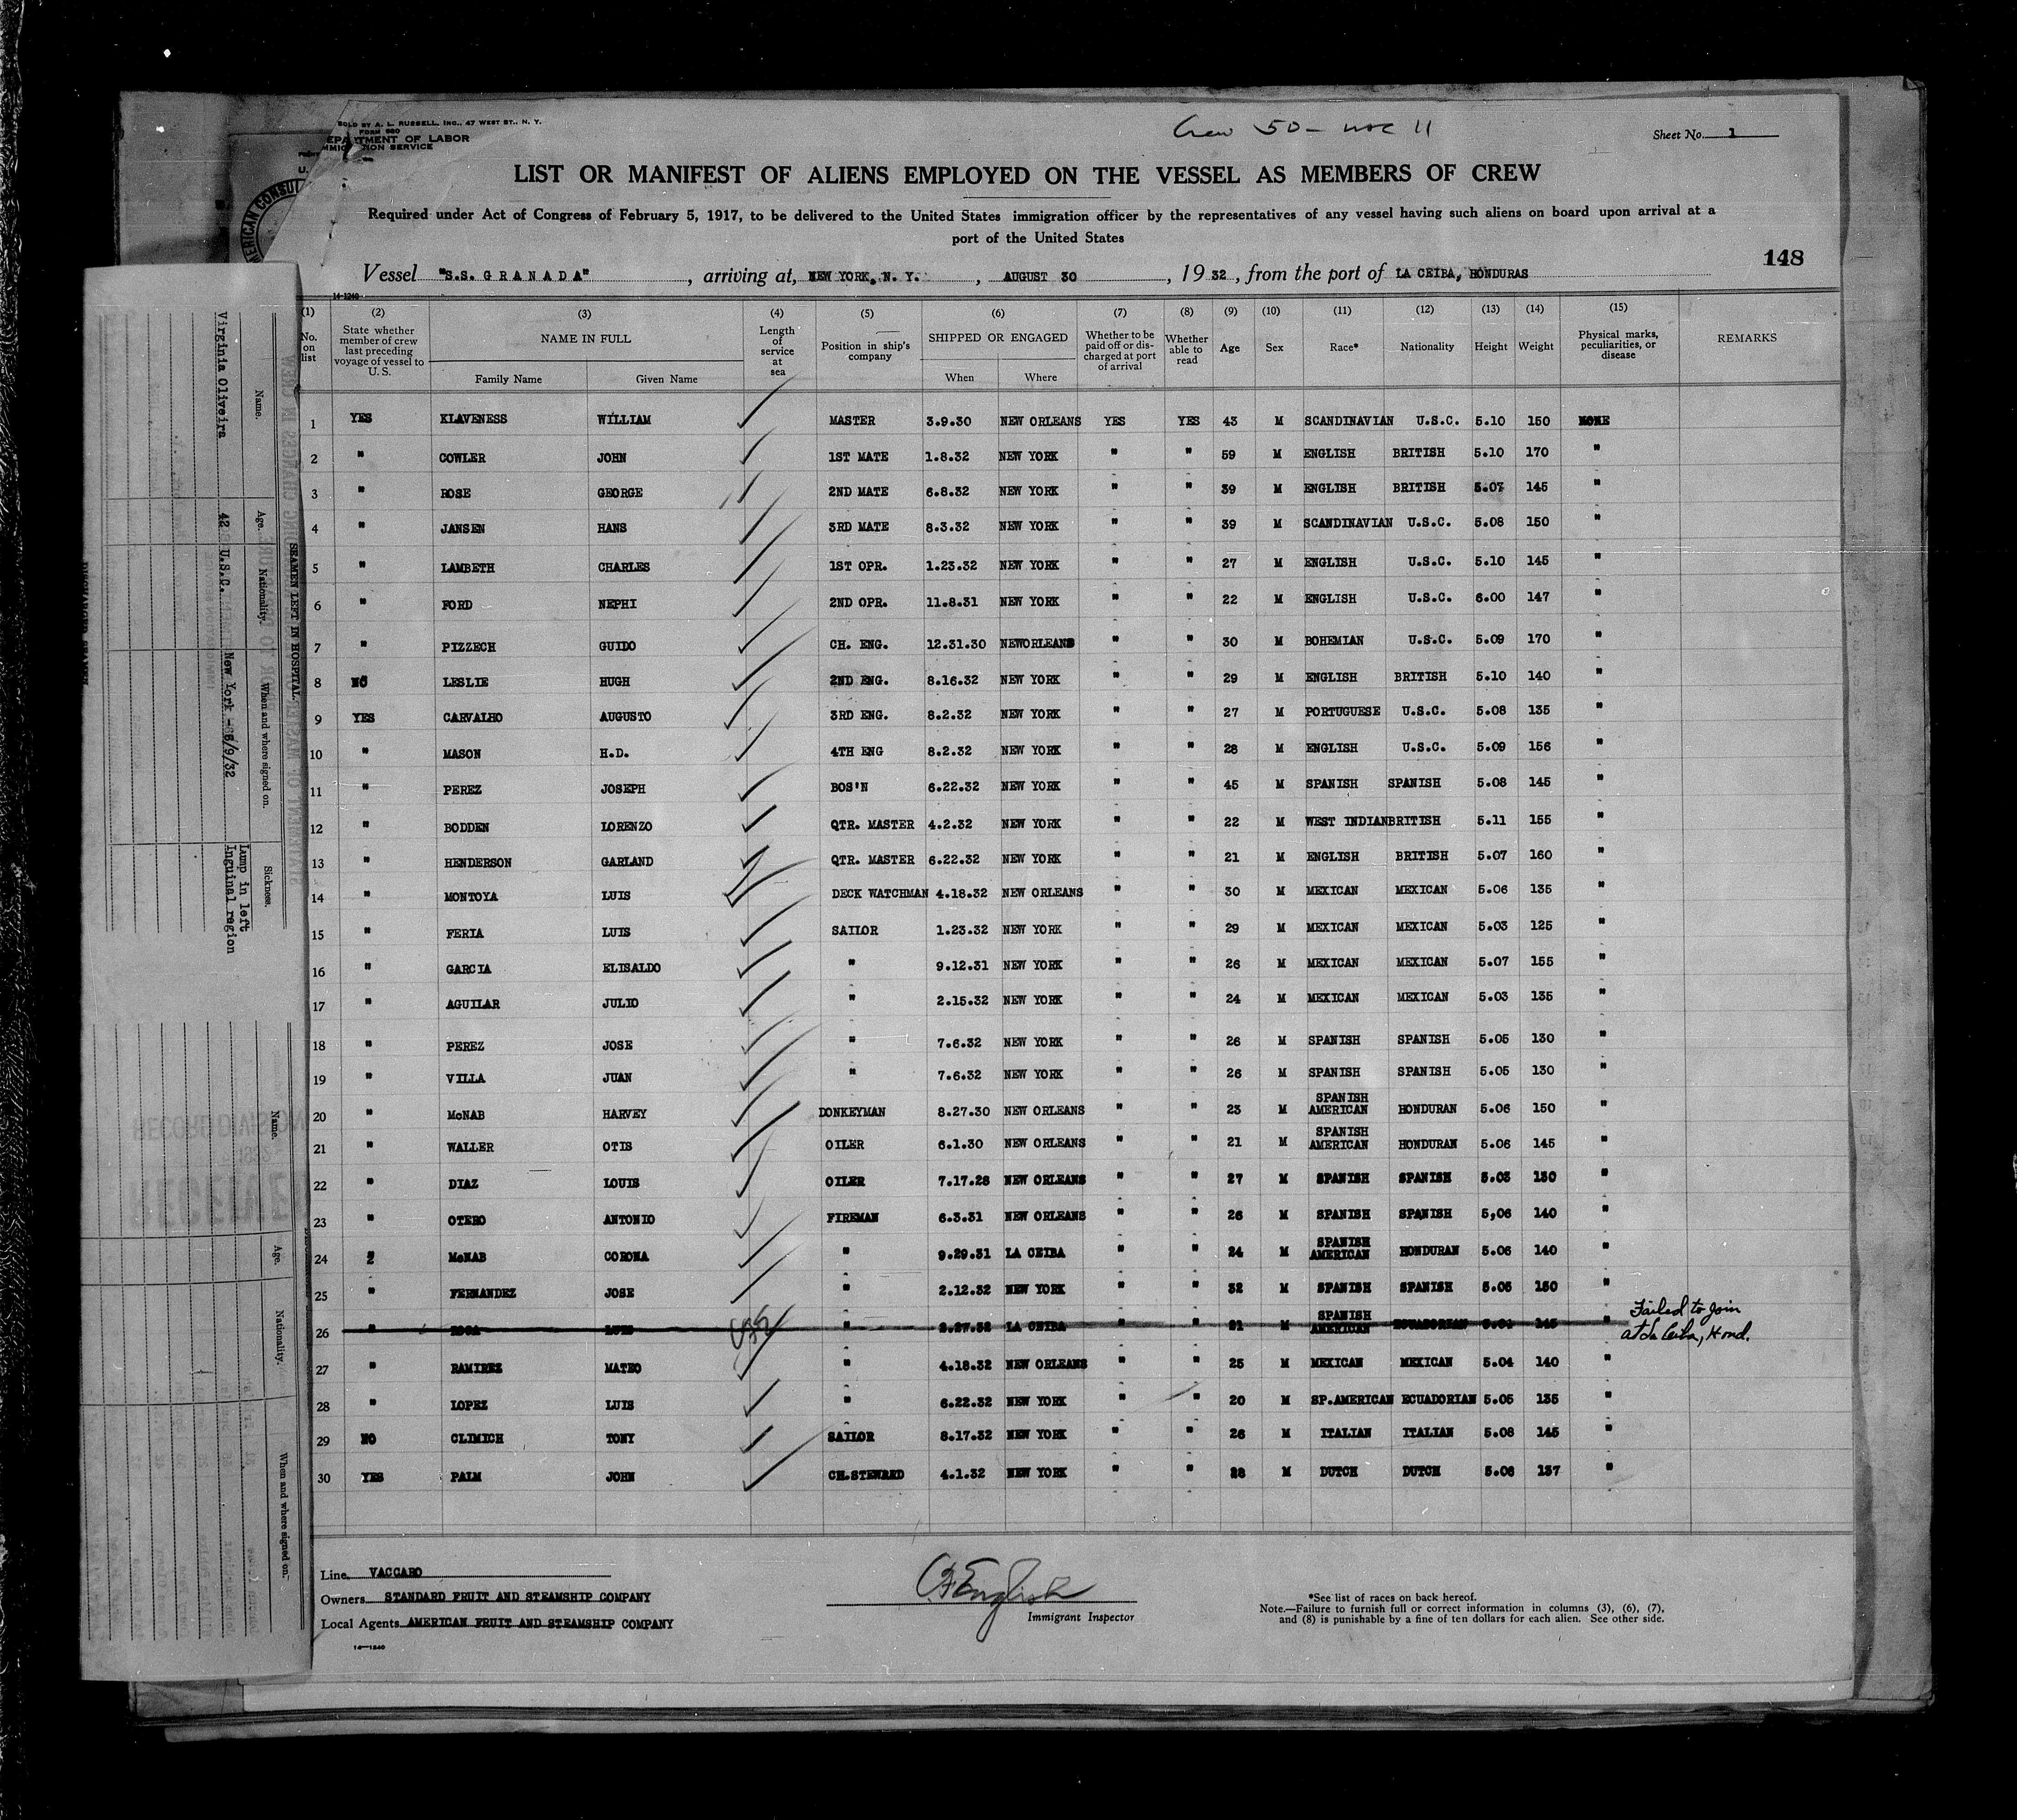 SOLD BY A. L. RUSSELL, INC., 47 WEST ST., N. Y.
FORM 680
EPARTMENT OF LABOR
IMMIGRATION SERVICE
Crew 50 -
Sheet No. 1
LIST OR MANIFEST OF ALIENS EMPLOYED ON THE VESSEL AS MEMBERS OF CREW
Required under Act of Congress of February 5, 1917, to be delivered to the United States immigration officer by the representatives of any vessel having such aliens on board upon arrival at a
port of the United States
148
Vessel "S.S. GRANADA", arriving at, NEW YORK, N. Y., AUGUST 30, 1932, from the port of LA CEIBA, HONDURAS
14-1240
(1) (2) (3) (4) (5) (6) (7) (8) (9) (10) (11) (12) (13) (14) (15)
No. on list State whether member of crew last preceding voyage of vessel to U. S. NAME IN FULL Family Name Given Name Length of service at sea Position in ship's company SHIPPED OR ENGAGED When Where Whether to be paid off or discharged at port of arrival Whether able to read Age Sex Race* Nationality Height Weight Physical marks, peculiarities, or disease REMARKS
1 YES KLAVENESS WILLIAM MASTER 3.9.30 NEW ORLEANS YES YES 43 M SCANDINAVIAN U.S.C. 5.10 150 NONE
2 " COWLER JOHN 1ST MATE 1.8.32 NEW YORK " " 59 M ENGLISH BRITISH 5.10 170 "
3 " ROSE GEORGE 2ND MATE 6.8.32 NEW YORK " " 39 M ENGLISH BRITISH 5.07 145 "
4 " JANSEN HANS 3RD MATE 8.3.32 NEW YORK " " 39 M SCANDINAVIAN U.S.C. 5.08 150 "
5 " LAMBETH CHARLES 1ST OPR. 1.23.32 NEW YORK " " 27 M ENGLISH U.S.C. 5.10 145 "
6 " FORD NEPHI 2ND OPR. 11.8.31 NEW YORK " " 22 M ENGLISH U.S.C. 6.00 147 "
7 " PIZZECH GUIDO CH. ENG. 12.31.30 NEWORLEANS " " 30 M BOHEMIAN U.S.C. 5.09 170 "
8 NO LESLIE HUGH 2ND ENG. 8.16.32 NEW YORK " " 29 M ENGLISH BRITISH 5.10 140 "
9 YES CARVALHO AUGUSTO 3RD ENG. 8.2.32 NEW YORK " " 27 M PORTUGUESE U.S.C. 5.08 135 "
10 " MASON H.D. 4TH ENG 8.2.32 NEW YORK " " 28 M ENGLISH U.S.C. 5.09 156 "
11 " PEREZ JOSEPH BOS'N 6.22.32 NEW YORK " " 45 M SPANISH SPANISH 5.08 145 "
12 " BODDEN LORENZO QTR. MASTER 4.2.32 NEW YORK " " 22 M WEST INDIAN BRITISH 5.11 155 "
13 " HENDERSON GARLAND QTR. MASTER 6.22.32 NEW YORK " " 21 M ENGLISH BRITISH 5.07 160 "
14 " MONTOYA LUIS DECK WATCHMAN 4.18.32 NEW ORLEANS " " 30 M MEXICAN MEXICAN 5.06 135 "
15 " FERIA LUIS SAILOR 1.23.32 NEW YORK " " 29 M MEXICAN MEXICAN 5.03 125 "
16 " GARCIA ELISALDO " 9.12.31 NEW YORK " " 26 M MEXICAN MEXICAN 5.07 155 "
17 " AGUILAR JULIO " 2.15.32 NEW YORK " " 24 M MEXICAN MEXICAN 5.03 135 "
18 " PEREZ JOSE " 7.6.32 NEW YORK " " 26 M SPANISH SPANISH 5.05 130 "
19 " VILLA JUAN " 7.6.32 NEW YORK " " 26 M SPANISH SPANISH 5.05 130 "
20 " McNAB HARVEY DONKEYMAN 8.27.30 NEW ORLEANS " " 23 M SPANISH AMERICAN HONDURAN 5.06 150 "
21 " WALLER OTIS OILER 6.1.30 NEW ORLEANS " " 21 M SPANISH AMERICAN HONDURAN 5.06 145 "
22 " DIAZ LOUIS OILER 7.17.28 NEW ORLEANS " " 27 M SPANISH SPANISH 5.03 130 "
23 " OTERO ANTONIO FIREMAN 6.3.31 NEW ORLEANS " " 26 M SPANISH SPANISH 5,06 140 "
24 " McNAB CORONA " 9.29.31 LA CEIBA " " 24 M SPANISH AMERICAN HONDURAN 5.06 140 "
25 " FERNANDEZ JOSE " 2.12.32 NEW YORK " " 32 M SPANISH SPANISH 5.05 150 "
26 " LUIS " LA CEIBA " " 21 M SPANISH AMERICAN ECUADORIAN 145 " Failed to join
at La Ceiba, Hond.
27 " RAMIREZ MATEO " 4.18.32 NEW ORLEANS " " 25 M MEXICAN MEXICAN 5.04 140 "
28 " LOPEZ LUIS " 6.22.32 NEW YORK " " 20 M SP.AMERICAN ECUADORIAN 5.05 135 "
29 NO CLIMICH TONY SAILOR 8.17.32 NEW YORK " " 26 M ITALIAN ITALIAN 5.08 145 "
30 YES PALM JOHN CH.STEWARD 4.1.32 NEW YORK " " 28 M DUTCH DUTCH 5.06 137 "
Line VACCARO
Owners STANDARD FRUIT AND STEAMSHIP COMPANY
Local Agents AMERICAN FRUIT AND STEAMSHIP COMPANY
14-1240
English
Immigrant Inspector
*See list of races on back hereof.
Note.—Failure to furnish full or correct information in columns (3), (6), (7),
and (8) is punishable by a fine of ten dollars for each alien. See other side.
AMERICAN CONSUL
SEAMEN LEFT IN HOSPITAL
Name. Age. Nationality. When and where signed on. Sickness.
Virginia Oliveira 42 U.S.C. New York - 8/9/32 Lump in left
Inguinal region
DISCHARGED SEAMEN
Name. Age. Nationality. When and where signed on.
RECORD DIVISION
RECEIVED